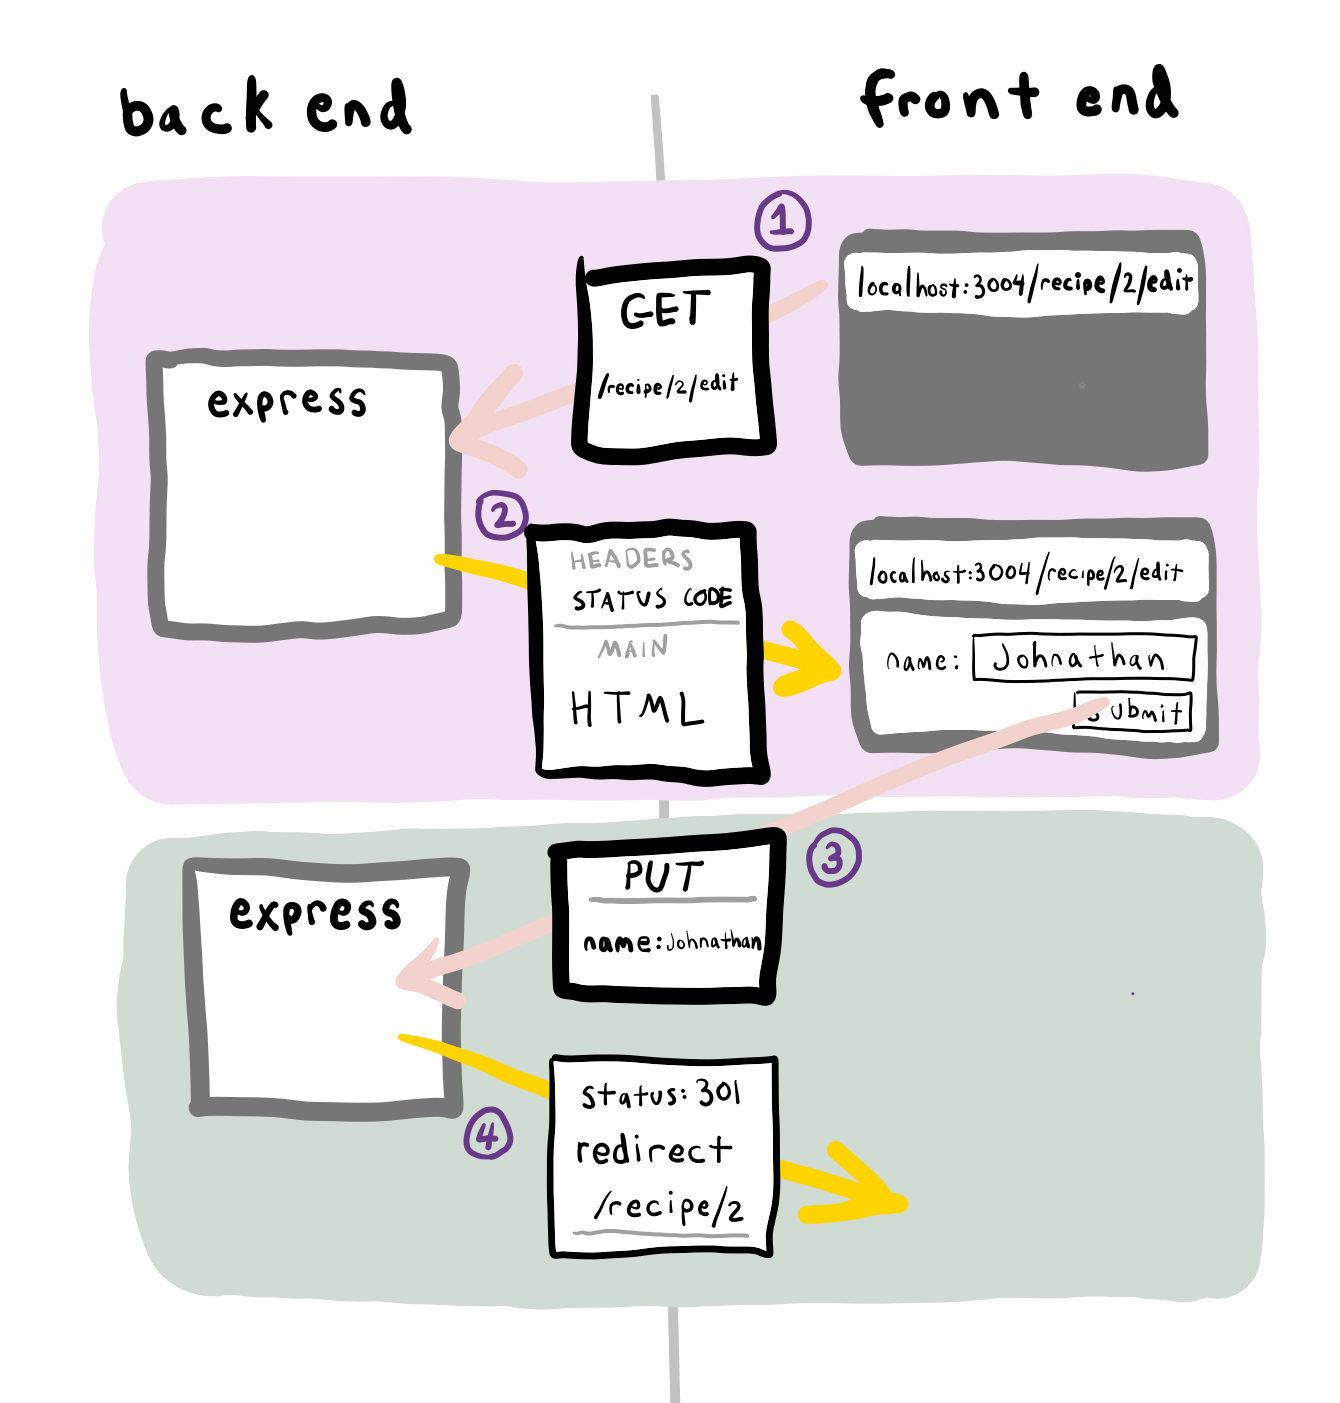 back end
front end
1
localhost:3004/recipe/2/edit
GET
/recipe/2/edit
express
2
HEADERS
STATUS CODE
MAIN
HTML
localhost:3004/recipe/2/edit
name: Johnathan
Submit
3
PUT
name: Johnathan
express
4
status: 301
redirect
/recipe/2